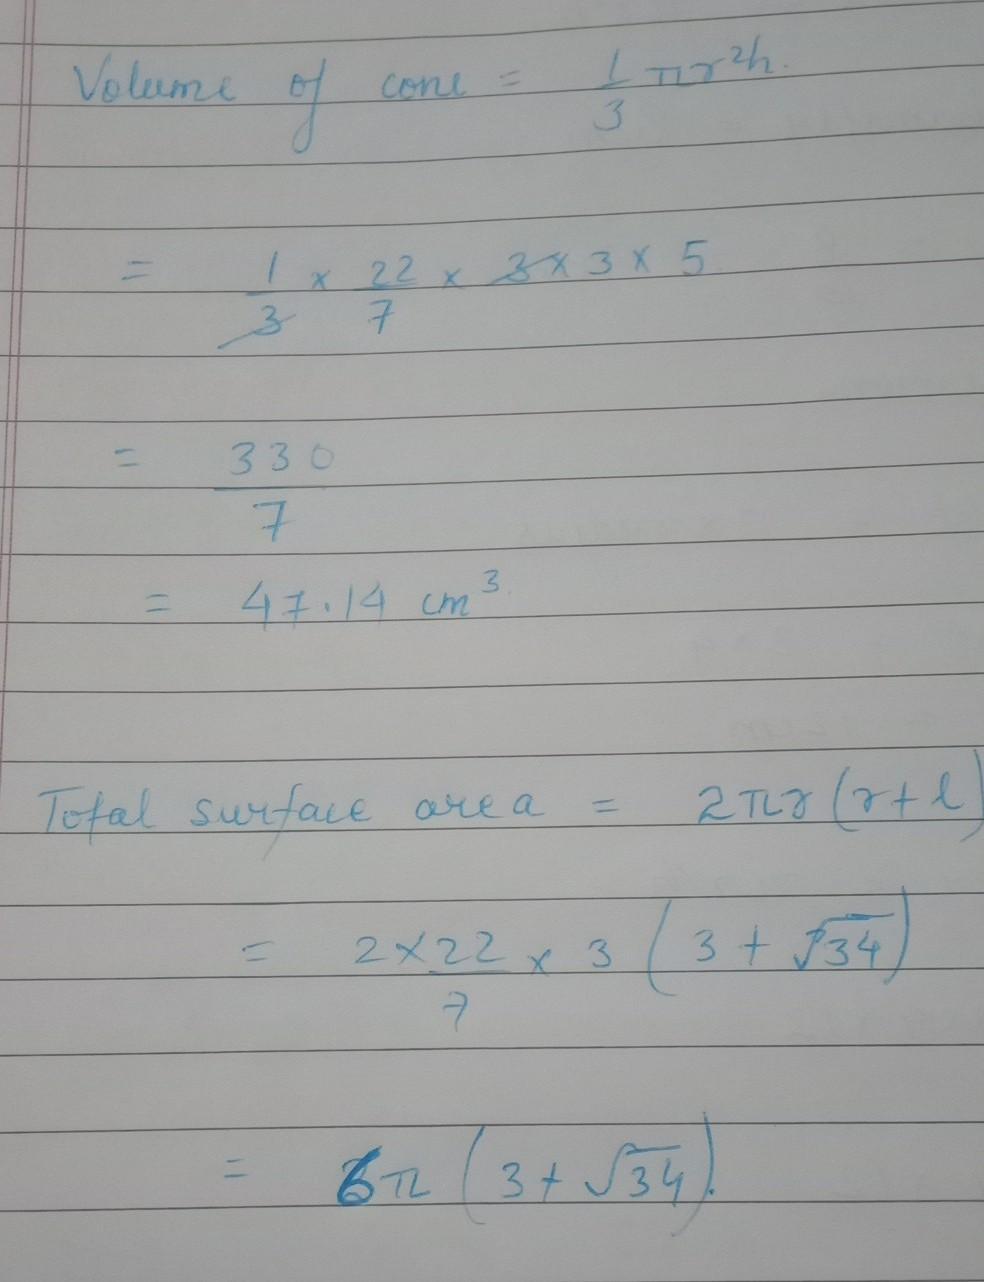 Volume of cone = 1/3 πr²h.
= 1/3 × 22/7 × 3 × 3 × 5
= 330/7
= 47.14 cm³
Total surface area = 2πr(r+l)
= 2×22/7 × 3 (3 + √34)
= 6π (3+ √34).